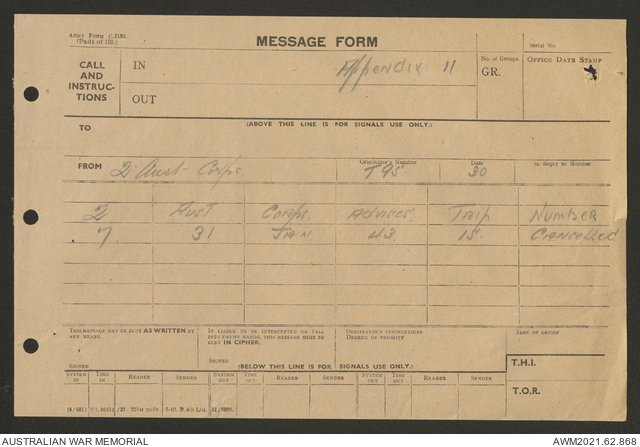 ARMY FORM C.2136.
(Pads of 100.)
MESSAGE FORM
Serial No.
CALL
AND
INSTRUC-
TIONS
IN
Appendix 11
No. of Groups.
GR.
OFFICE DATE STAMP
OUT
TO
(ABOVE THIS LINE IS FOR SIGNALS USE ONLY.)
FROM
2 Aust - Corps.
Originator's Number
T95
Date
30
In Reply to Number
2 AUST Corps. Advises Trip Number
7 31 JAN 43 IS Cancelled
THIS MESSAGE MAY BE SENT AS WRITTEN BY
ANY MEANS.
SIGNED
IF LIABLE TO BE INTERCEPTED OR FALL
INTO ENEMY HANDS, THIS MESSAGE MUST BE
SENT IN CIPHER.
SIGNED
ORIGINATOR'S INSTRUCTIONS
DEGREE OF PRIORITY
TIME OF ORIGIN
(BELOW THIS LINE IS FOR SIGNALS USE ONLY.)
T.H.I.
SYSTEM IN TIME IN READER SENDER SYSTEM OUT TIME OUT READER SENDER SYSTEM OUT TIME OUT READER SENDER
T.O.R.
AUSTRALIAN WAR MEMORIAL
AWM2021.62.868